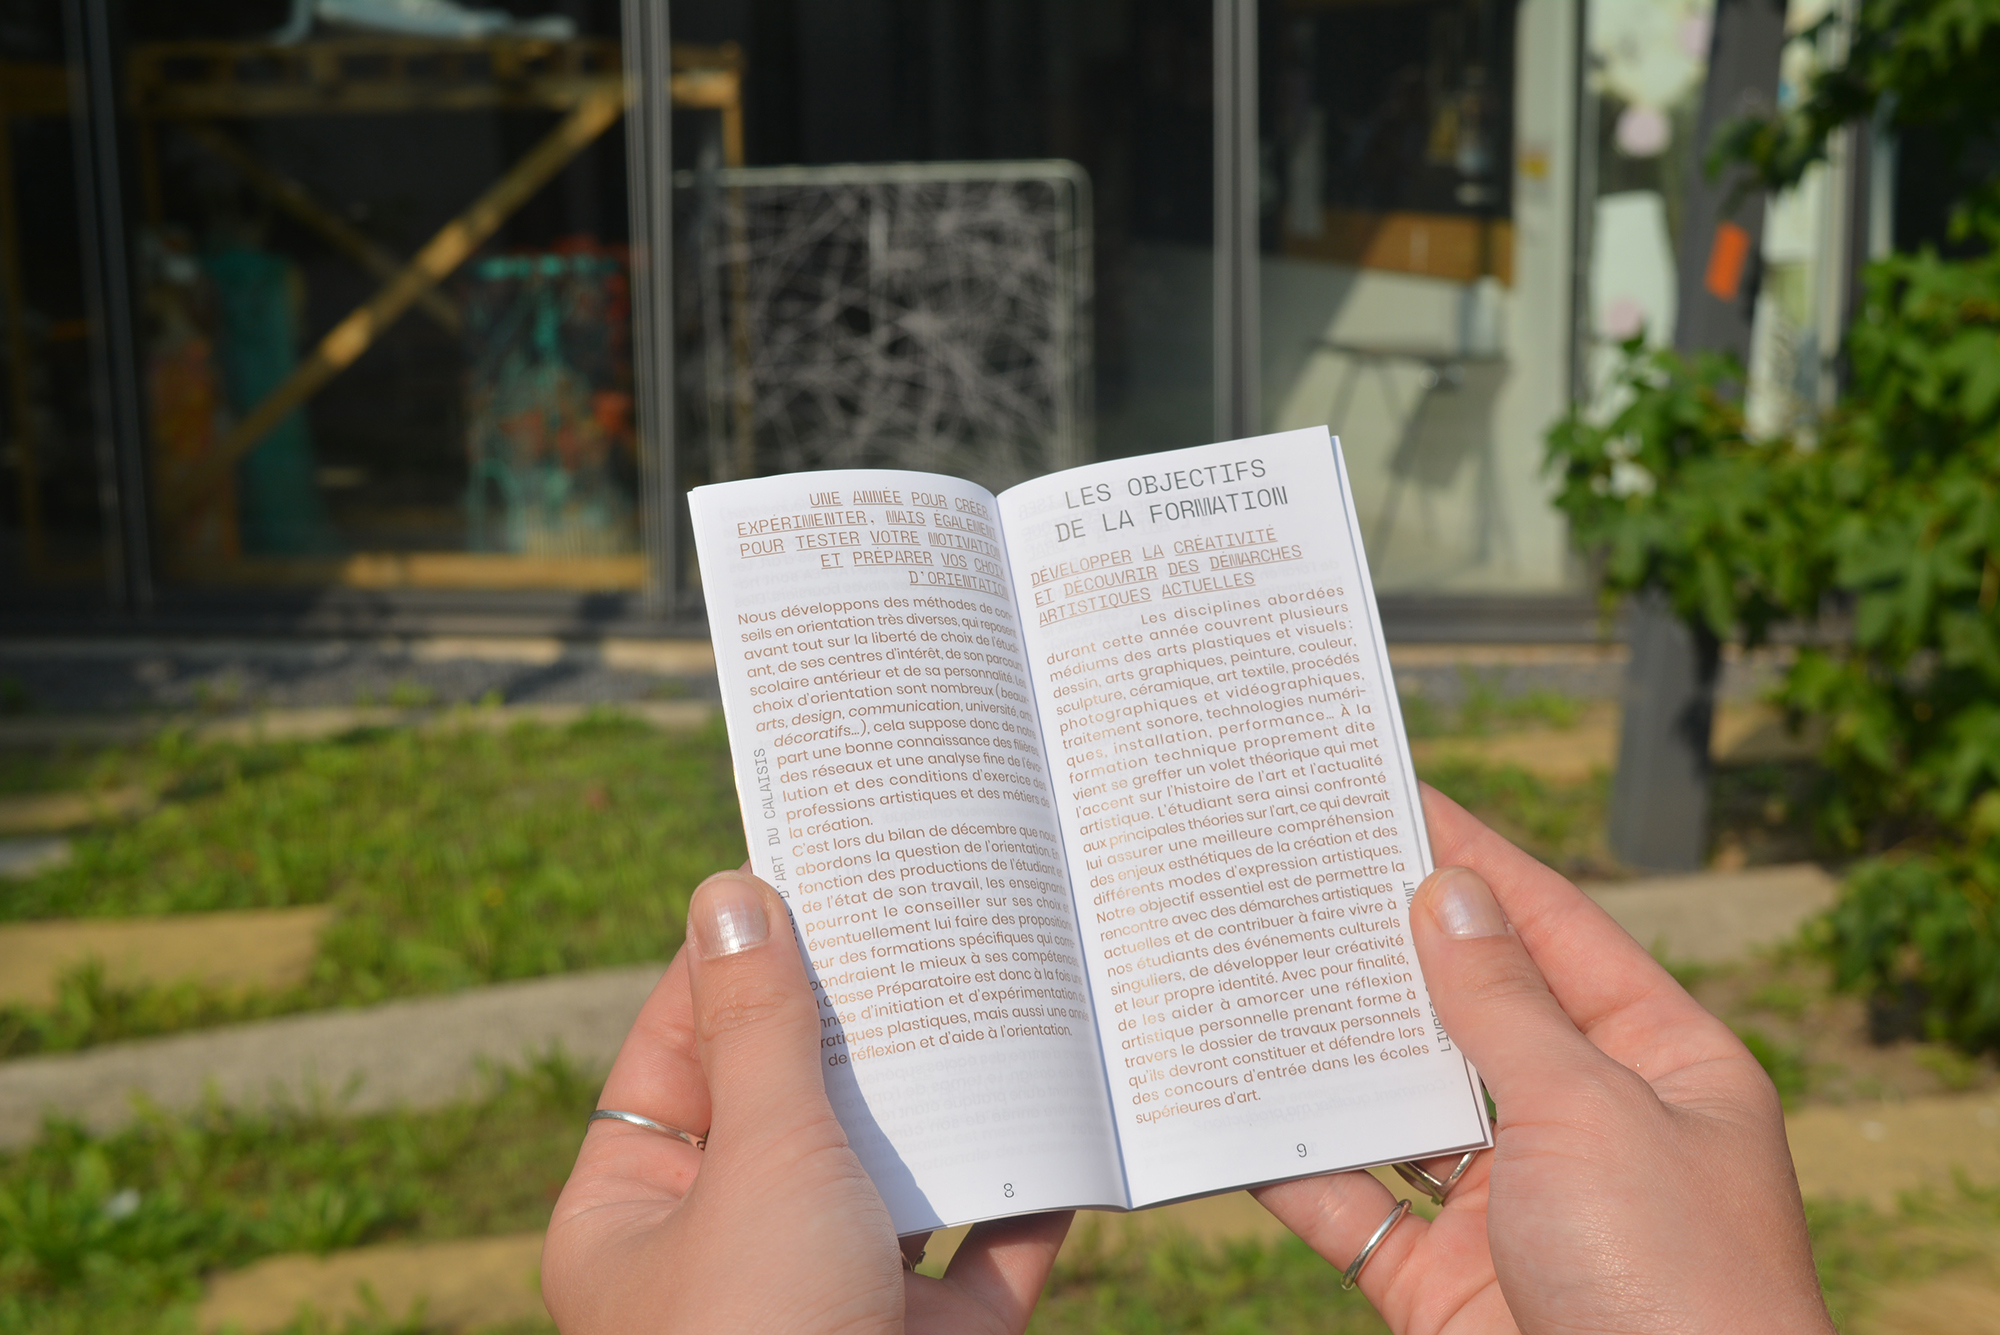 UNE ANNÉE POUR CRÉER,
EXPÉRIMENTER, MAIS ÉGALEMENT
POUR TESTER VOTRE MOTIVATION
ET PRÉPARER VOS CHOIX
D'ORIENTATION
Nous développons des méthodes de con-
seils en orientation très diverses, qui reposent
avant tout sur la liberté de choix de l'étudi-
ant, de ses centres d'intérêt, de son parcours
scolaire antérieur et de sa personnalité. Les
choix d'orientation sont nombreux (beaux-
arts, design, communication, université, arts
décoratifs…), cela suppose donc de notre
part une bonne connaissance des filières,
des réseaux et une analyse fine de l'évo-
lution et des conditions d'exercice des
professions artistiques et des métiers de
la création.
C'est lors du bilan de décembre que nous
abordons la question de l'orientation. En
fonction des productions de l'étudiant et
de l'état de son travail, les enseignants
pourront le conseiller sur ses choix et
éventuellement lui faire des propositions
sur des formations spécifiques qui corres-
pondraient le mieux à ses compétences.
Classe Préparatoire est donc à la fois une
année d'initiation et d'expérimentation de
pratiques plastiques, mais aussi une année
de réflexion et d'aide à l'orientation.
D'ART DU CALAISIS
8
LES OBJECTIFS
DE LA FORMATION
DÉVELOPPER LA CRÉATIVITÉ
ET DÉCOUVRIR DES DÉMARCHES
ARTISTIQUES ACTUELLES
Les disciplines abordées
durant cette année couvrent plusieurs
médiums des arts plastiques et visuels :
dessin, arts graphiques, peinture, couleur,
sculpture, céramique, art textile, procédés
photographiques et vidéographiques,
traitement sonore, technologies numéri-
ques, installation, performance… À la
formation technique proprement dite
vient se greffer un volet théorique qui met
l'accent sur l'histoire de l'art et l'actualité
artistique. L'étudiant sera ainsi confronté
aux principales théories sur l'art, ce qui devrait
lui assurer une meilleure compréhension
des enjeux esthétiques de la création et des
différents modes d'expression artistiques.
Notre objectif essentiel est de permettre la
rencontre avec des démarches artistiques
actuelles et de contribuer à faire vivre à
nos étudiants des événements culturels
singuliers, de développer leur créativité
et leur propre identité. Avec pour finalité,
de les aider à amorcer une réflexion
artistique personnelle prenant forme à
travers le dossier de travaux personnels
qu'ils devront constituer et défendre lors
des concours d'entrée dans les écoles
supérieures d'art.
9